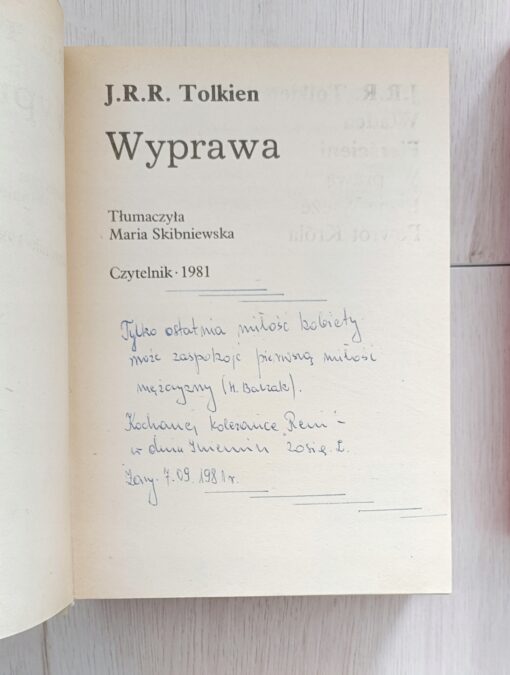 J.R.R. Tolkien
Wyprawa
Tłumaczyła
Maria Skibniewska
Czytelnik · 1981
Tylko ostatnia miłość kobiety
może zaspokoić pierwszą miłość
mężczyzny (H. Balzak).
Kochanej koleżance "Reni" -
w dniu Imienin Zosia Z.
Żary. 7.09.1981r.